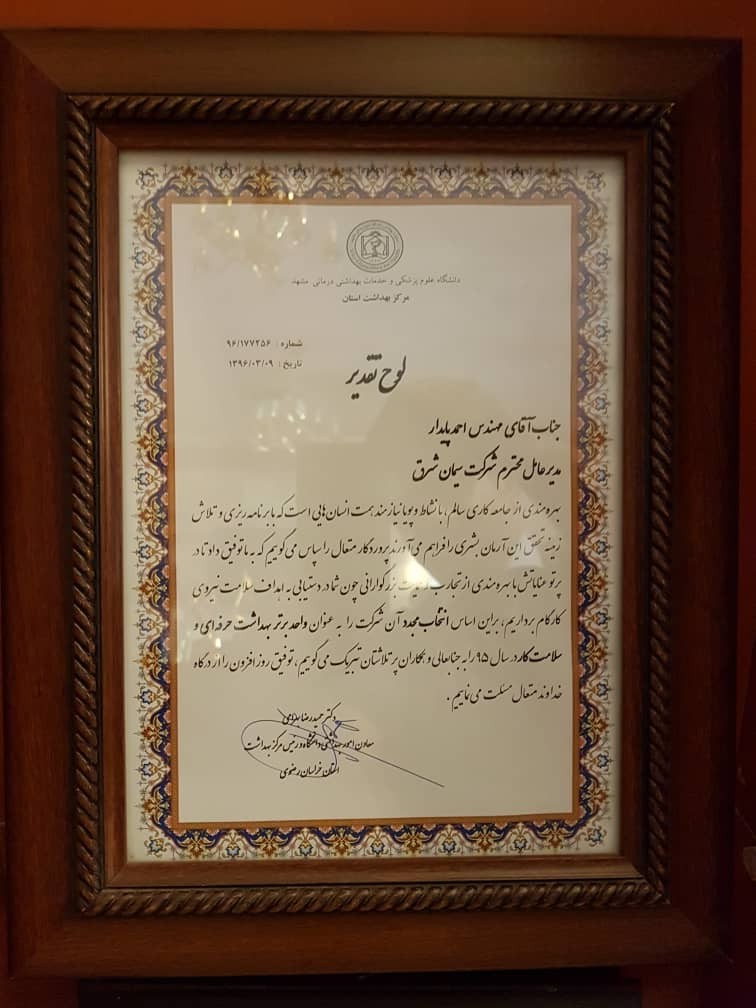 دانشگاه علوم پزشکی و خدمات بهداشتی درمانی مشهد
مرکز بهداشت استان
شماره : ۹۶/۱۷۷۲۵۶
تاریخ : ۱۳۹۶/۰۳/۰۹
لوح تقدیر
جناب آقای مهندس احمد پایدار
مدیرعامل محترم شرکت سیمان شرق
بهره مندی از جامعه کاری سالم، با نشاط و پویا نیازمند همت انسان هایی است که با برنامه ریزی و تلاش
زمینه تحقق این آرمان بشری را فراهم می آورند پروردگار متعال را سپاس می گوییم که به ما توفیق داد تا در
پرتو عنایاتش با بهره مندی از تجارب بزرگوارانی چون شما در دستیابی به اهداف سلامت نیروی
کار گام برداریم، براین اساس انتخاب مجدد آن شرکت را به عنوان واحد برتر بهداشت حرفه ای و
سلامت کار در سال ۹۵ را به جنابعالی و همکاران پرتلاشتان تبریک می گوییم، توفیق روز افزون را از درگاه
خداوند متعال مسئلت می نماییم .
دکتر حمیدرضا
معاون امور بهداشتی دانشگاه و رئیس مرکز بهداشت
استان خراسان رضوی